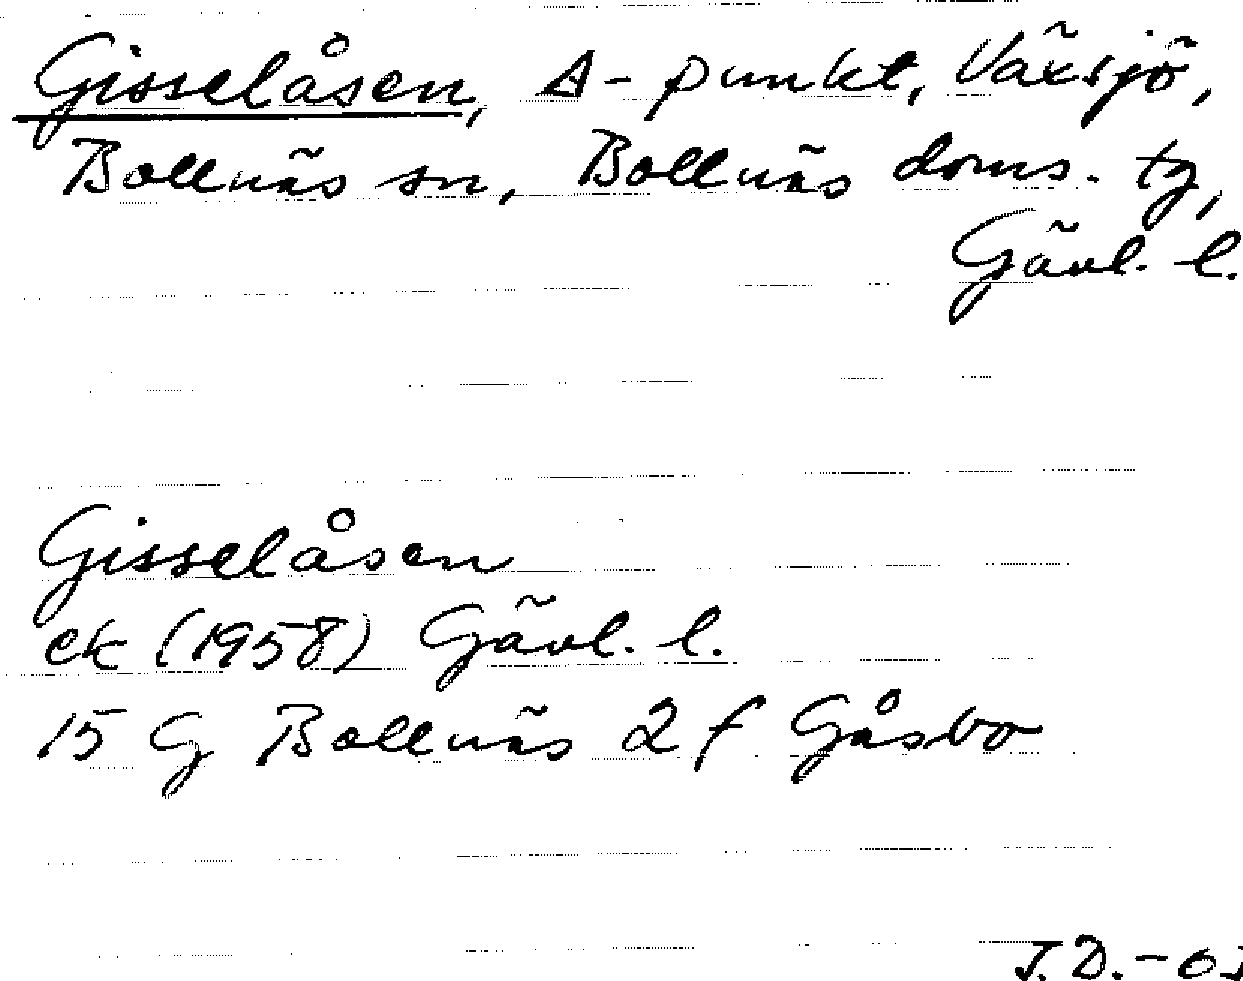 Gisselåsen, Δ-punkt, Växsjö,
Bollnäs sn, Bollnäs doms. tg,
Gävl. l.
Gisselåsen
ek (1958) Gävl. l.
15 G Bollnäs 2 f Gåsbo
J.D.-